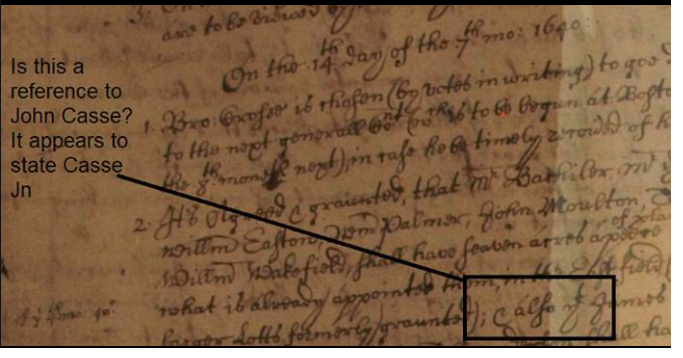 Is this a
reference to
John Casse?
It appears to
state Casse
Jn
are to be viewed
On the 14th day of the 7th mo: 1640:
1. Bro: Crosse is chosen (by votes in writing) to goe
to the next generall Cort (wch is to be begun at Bosto
the 8th moneth next), in case he be timely
2. It's Agreed & graunted, that Mr Bachiler, Mr
Willm Easton, Wm Palmer, John Moulton,
Willm Wakefield, shall have seaven acres apeece
what is already appointed them, in the field
larger Lotts formerly graunted); & also yt James
shall ha